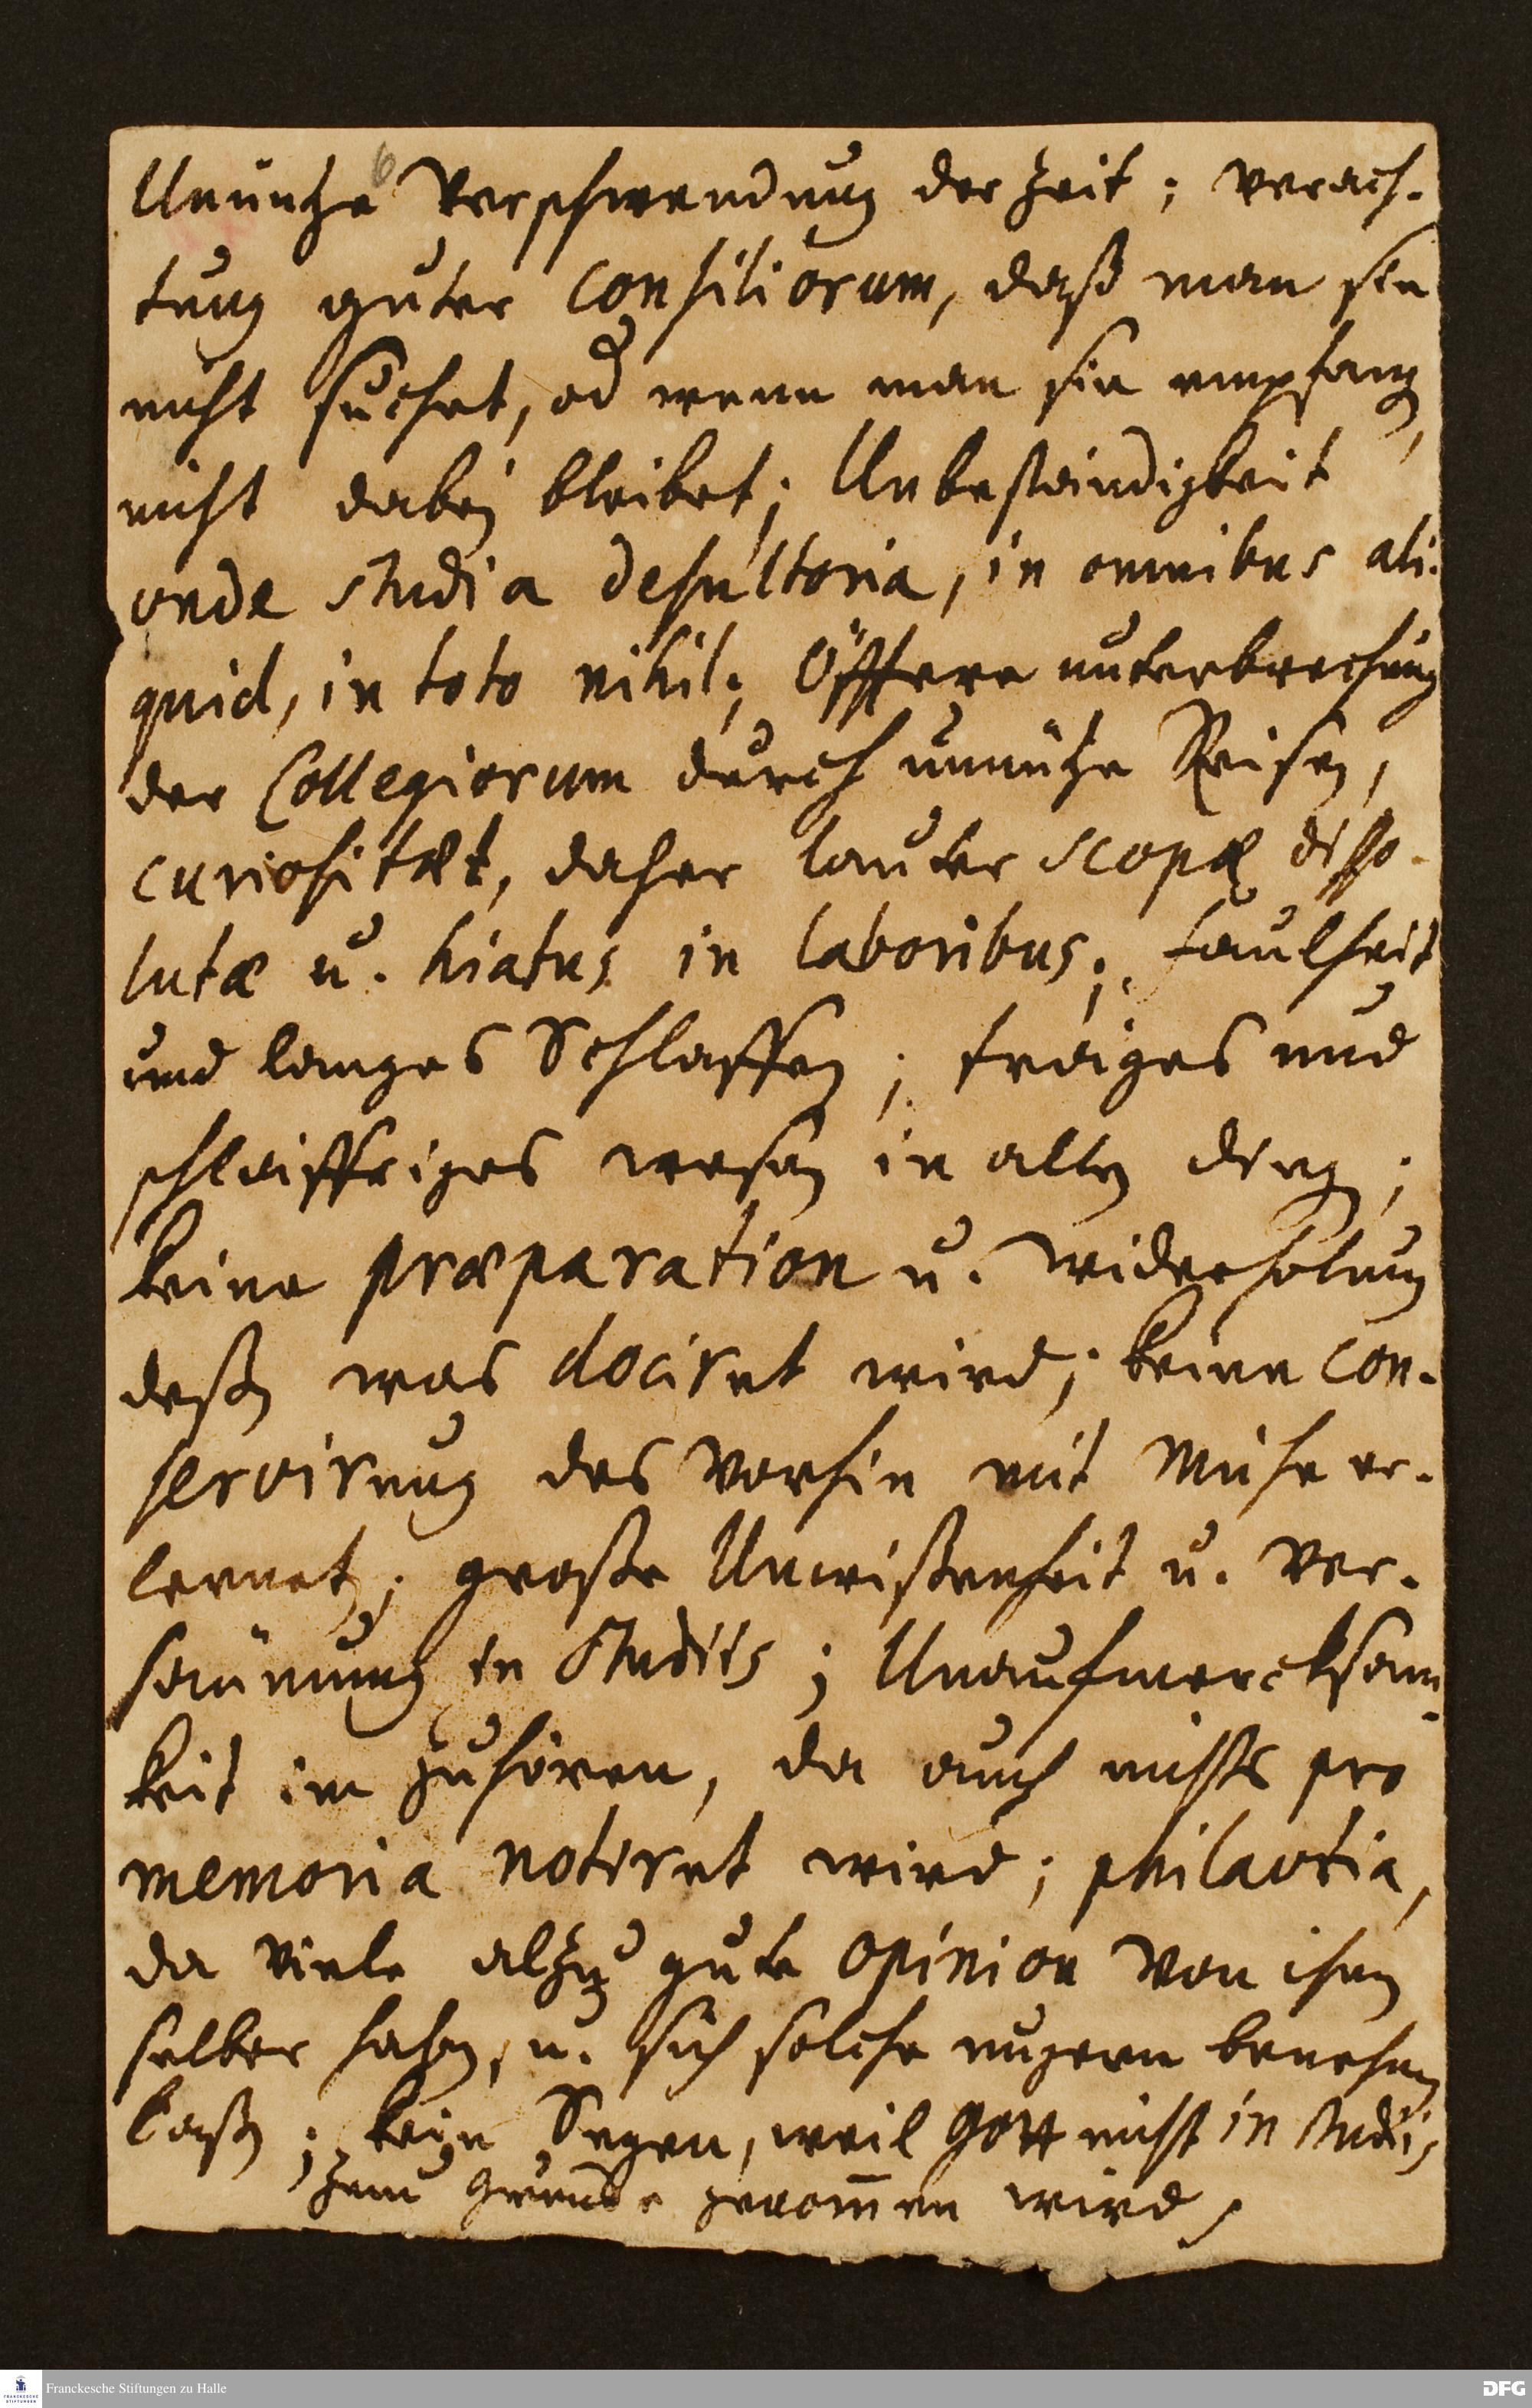 6
Unnütze Verschwendung der Zeit; Verach-
tung guter Consiliorum, daß man sie
nicht suchet, od wenn man sie empfang,
nicht dabey bleibet; Unbeständigkeit
unde studia desultoria, in omnibus ali-
quid, in toto nihil; Öfftere unterbrechung
der Collegiorum durch unnütze Reisen,
curiositæt, daher lauter scopæ disso-
lutæ u. hiatus in laboribus; faulheit
und langes Schlaffen; träiges und
schläffriges wesen in allen ding;
keine præparation u. widerholung
deßen was dociret wird; keine con-
servirung des vorhin mit Mühe er-
lernet; große Unwißenheit u. Ver-
säumung in Studiis; Unaufmercksam-
keit im Zuhören, da auch nichts pro
memoria notiret wird; philavtia,
da viele alzu gute opinion von ihnen
selber haben, u. sich solche ungern benehmen
laßen; kein Segen, weil Gott nicht in studiis
zum Grunde genom̅en wird,
Franckesche Stiftungen zu Halle
FRANCKESCHE STIFTUNGEN
DFG